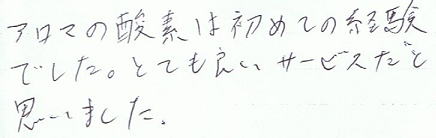 アロマの酸素は初めての経験
でした。とても良いサービスだと
思いました.